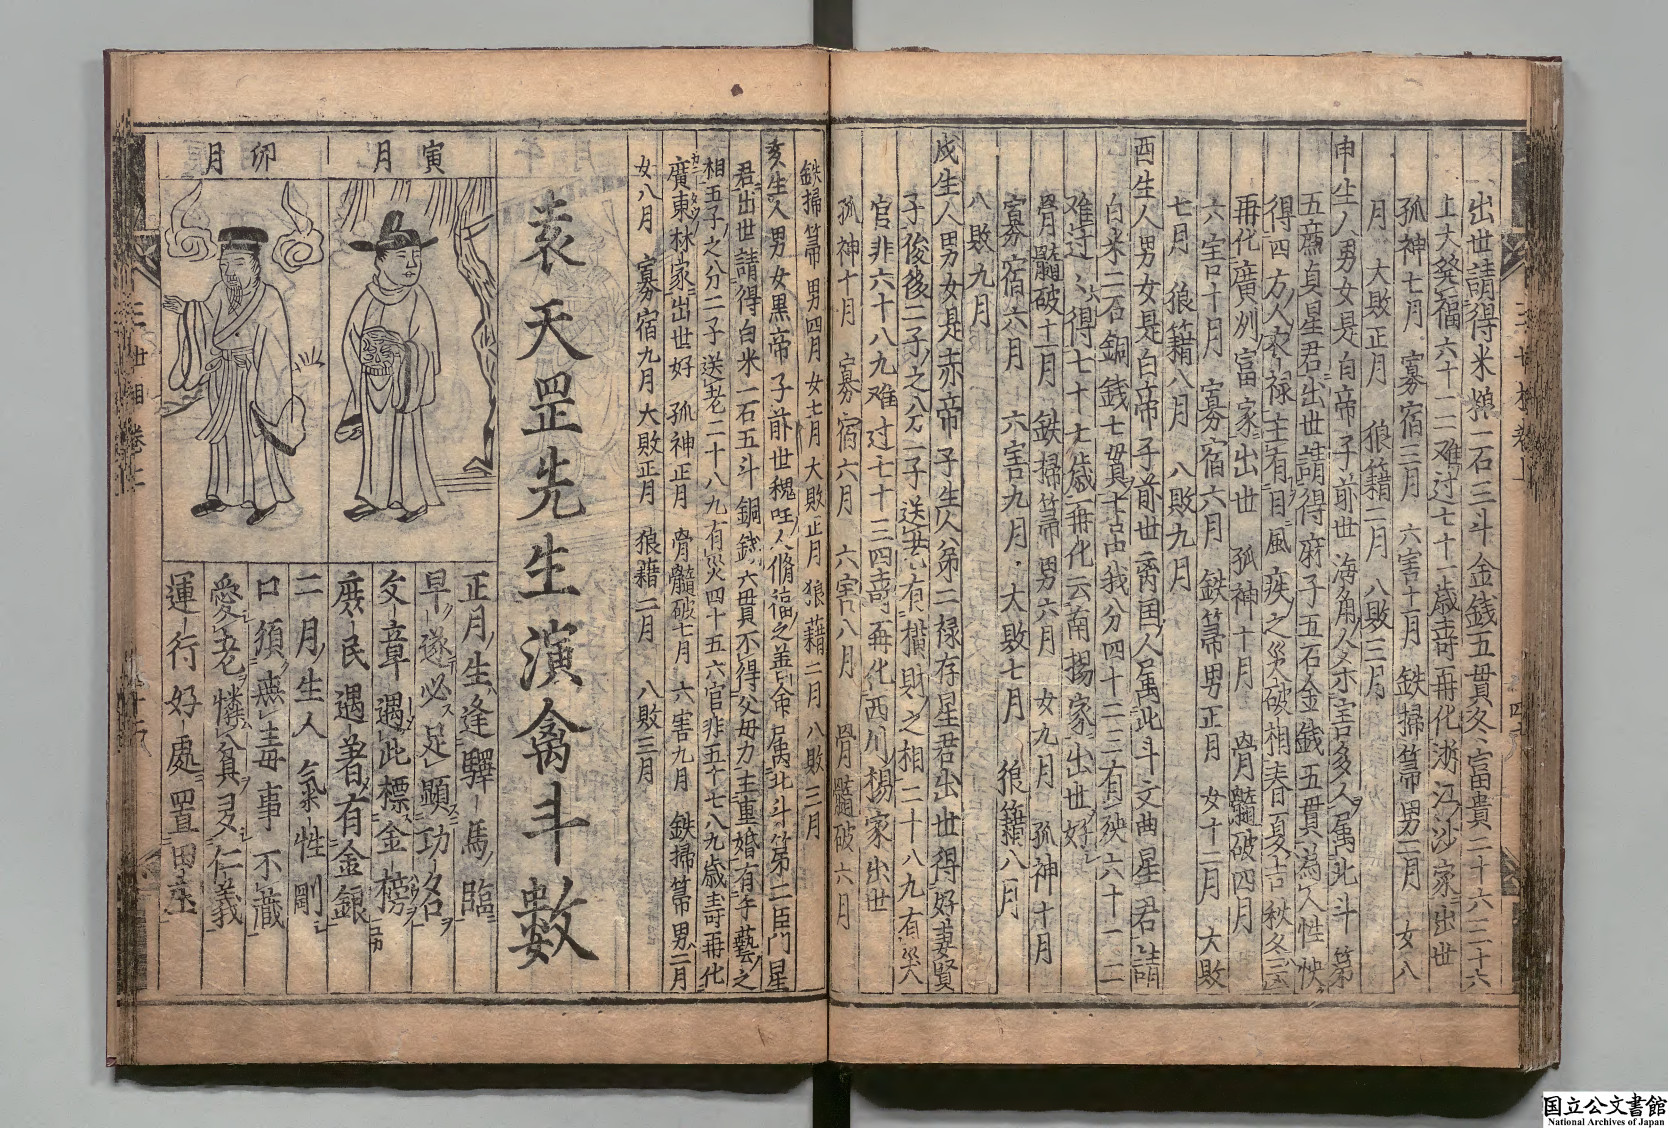 出世請得米粮二石三斗金錢五貫冬富貴二十六三十六
上大發福六十一二难过七十一歳壽再化浙江沙家出世
孤神七月 寡宿三月 六害十一月 鉄掃箒男二月 女八
月 大敗正月 狼籍二月 八敗三月
申生人男女是白帝子前世海角人来害多人属北斗第
五廉貞星君出世請得麻子五石金錢五貫為人性怏
得四方人衣禄主有目風疾之災破相春夏吉秋冬
再化廣州富家出世 孤神十月 骨髓破四月
六害十月 寡宿六月 鉄箒男正月 女十二月 大敗
七月 狼籍八月 八敗九月
酉生人男女是白帝子前世商国人属北斗文曲星君請
白米二石銅錢七貫 我分四十二三有殃六十一二
难过 得七十七歳再化云南揚家出世好
骨髓破十一月 鉄掃箒男六月 女九月 孤神十月
寡宿六月 六害九月 大敗七月 狼籍八月
八敗九月
戌生人男女是赤帝子生人第二禄存星君出世得好妻賢
子後後二子之分二子送老有横財之相二十八九有災
官非六十八九难过七十三四壽再化西川楊家出世
孤神十月 寡宿六月 六害八月 骨髓破六月
鉄掃箒男四月 女七月 大敗正月 狼藉二月 八敗三月
亥生人男女黒帝子前世 人脩福之善命属北斗第二臣門星
君出世請得白米一石五斗銅錢六貫不得父母力主重婚有手藝之
相五子之分二子送老二十八九有災四十五六官非五十七八九歳壽再化
廣東林家出世好 孤神正月 骨髓破七月 六害九月 鉄掃箒男二月
女八月 寡宿九月 大敗正月 狼藉二月 八敗三月
袁天罡先生演禽斗數
寅月
卯月
正月生逢驛馬臨
早遂必足顯功名
文章遇此標金榜
庶民遇著有金銀
二月生人氣性剛
口須無毒事不識
愛老憐貧多仁義
運行好處置田庄
三世相卷上
国立公文書館
National Archives of Japan